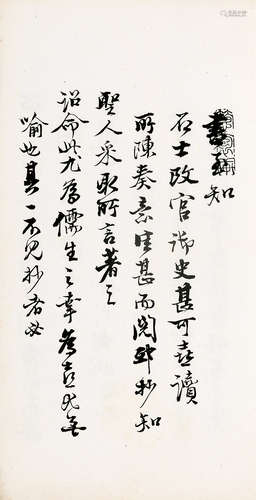 書到知
石士改官御史甚可喜讀
所陳奏意甚而閱邸抄知
聖人采取所言著之
詔命此尤為儒生之幸為喜無
喻也其一不見抄者